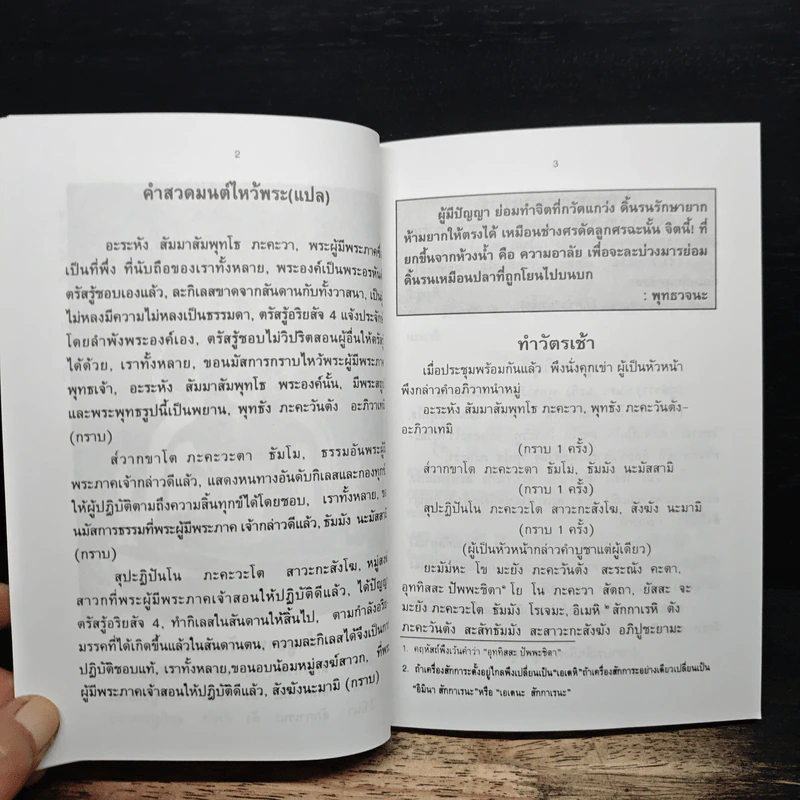 2
คำสวดมนต์ไหว้พระ(แปล)
อะระหัง สัมมาสัมพุทโธ ภะคะวา, พระผู้มีพระภาคซึ่
เป็นที่พึ่ง ที่นับถือของเราทั้งหลาย, พระองค์เป็นพระอรหันต์
ตรัสรู้ชอบเองแล้ว, ละกิเลสขาดจากสันดานกับทั้งวาสนา, เป็น
ไม่หลงมีความไม่หลงเป็นธรรมดา, ตรัสรู้อริยสัจ 4 แจ้งประจักษ์
โดยลำพังพระองค์เอง, ตรัสรู้ชอบไม่วิปริตสอนผู้อื่นให้ตรัสรู้
ได้ด้วย, เราทั้งหลาย, ขอนมัสการกราบไหว้พระผู้มีพระภาค
พุทธเจ้า, อะระหัง สัมมาสัมพุทโธ พระองค์นั้น, มีพระสถู
และพระพุทธรูปนี้เป็นพยาน, พุทธัง ภะคะวันตัง อะภิวาเทมิ
(กราบ)
ส๎วากขาโต ภะคะวะตา ธัมโม, ธรรมอันพระผู้มี
พระภาคเจ้ากล่าวดีแล้ว, แสดงหนทางอันดับกิเลสและกองทุกข์
ให้ผู้ปฏิบัติตามถึงความสิ้นทุกข์ได้โดยชอบ, เราทั้งหลาย, ขอ
นมัสการธรรมที่พระผู้มีพระภาค เจ้ากล่าวดีแล้ว, ธัมมัง นะมัสสามิ
(กราบ)
สุปะฏิปันโน ภะคะวะโต สาวะกะสังโฆ, หมู่สงฆ์
สาวกที่พระผู้มีพระภาคเจ้าสอนให้ปฏิบัติดีแล้ว, ได้ปัญญา
ตรัสรู้อริยสัจ 4, ทำกิเลสในสันดานให้สิ้นไป, ตามกำลังอริย
มรรคที่ได้เกิดขึ้นแล้วในสันดานตน, ความละกิเลสได้จึงเป็นการ
ปฏิบัติชอบแท้, เราทั้งหลาย,ขอนอบน้อมหมู่สงฆ์สาวก, ที่พระ
ผู้มีพระภาคเจ้าสอนให้ปฏิบัติดีแล้ว, สังฆังนะมามิ (กราบ)
3
ผู้มีปัญญา ย่อมทำจิตที่กวัดแกว่ง ดิ้นรนรักษายาก
ห้ามยากให้ตรงได้ เหมือนช่างศรดัดลูกศรฉะนั้น จิตนี้! ที่
ยกขึ้นจากห้วงน้ำ คือ ความอาลัย เพื่อจะละบ่วงมารย่อม
ดิ้นรนเหมือนปลาที่ถูกโยนไปบนบก
: พุทธวจนะ
ทำวัตรเช้า
เมื่อประชุมพร้อมกันแล้ว พึงนั่งคุกเข่า ผู้เป็นหัวหน้า
พึงกล่าวคำอภิวาทนำหมู่
อะระหัง สัมมาสัมพุทโธ ภะคะวา, พุทธัง ภะคะวันตัง-
อะภิวาเทมิ
(กราบ 1 ครั้ง)
ส๎วากขาโต ภะคะวะตา ธัมโม, ธัมมัง นะมัสสามิ
(กราบ 1 ครั้ง)
สุปะฏิปันโน ภะคะวะโต สาวะกะสังโฆ, สังฆัง นะมามิ
(กราบ 1 ครั้ง)
(ผู้เป็นหัวหน้ากล่าวคำบูชาแต่ผู้เดียว)
ยะมัม๎หะ โข มะยัง ภะคะวันตัง สะระณัง คะตา,
อุททิสสะ ปัพพะชิตา¹ โย โน ภะคะวา สัตถา, ยัสสะ จะ
มะยัง ภะคะวะโต ธัมมัง โรเจมะ, อิเมหิ² สักกาเรหิ ตัง
ภะคะวันตัง สะสัทธัมมัง สะสาวะกะสังฆัง อภิปูชะยามะ
1. คฤหัสถ์พึงเว้นคำว่า "อุททิสสะ ปัพพะชิตา"
2. ถ้าเครื่องสักการะตั้งอยู่ไกลพึงเปลี่ยนเป็น"เอเตหิ"ถ้าเครื่องสักการะอย่างเดียวเปลี่ยนเป็น
"อิมินา สักกาเรนะ"หรือ "เอเตนะ สักกาเรนะ"